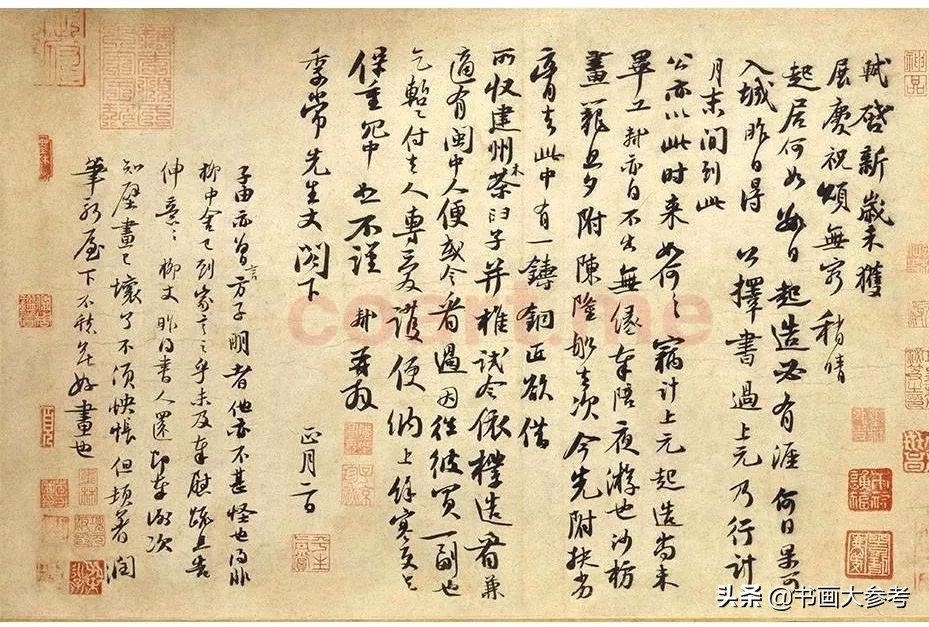 軾啓新歲未獲
展慶祝頌無窮稍晴
起居何如數日起造必有涯何日果可
入城昨日得公擇書過上元乃行計
月末間到此
公亦以此時來如何々竊計上元起造尚未
畢工軾亦自不出無緣奉陪夜游也沙枋
畫籠旦夕附陳隆船去次今先附扶劣
膏去此中有一鑄銅匠欲借
所收建州木茶臼子并椎試令依樣造看兼
適有閩中人便或令看過因往彼買一副也
乞暫付去人專愛護便納上餘寒更乞
保重冗中恕不謹軾再拜
季常先生丈閤下
正月二日
子由亦曾言方子明者他亦不甚怪也得非
柳中舍已到家言之乎未及奉慰疏且告
伸意々柳丈昨得書人還即奉謝次
知壁畫已壞了不須怏悵但頓著潤
筆新屋下不愁無好畫也
coart.me
头条 @书画大参考